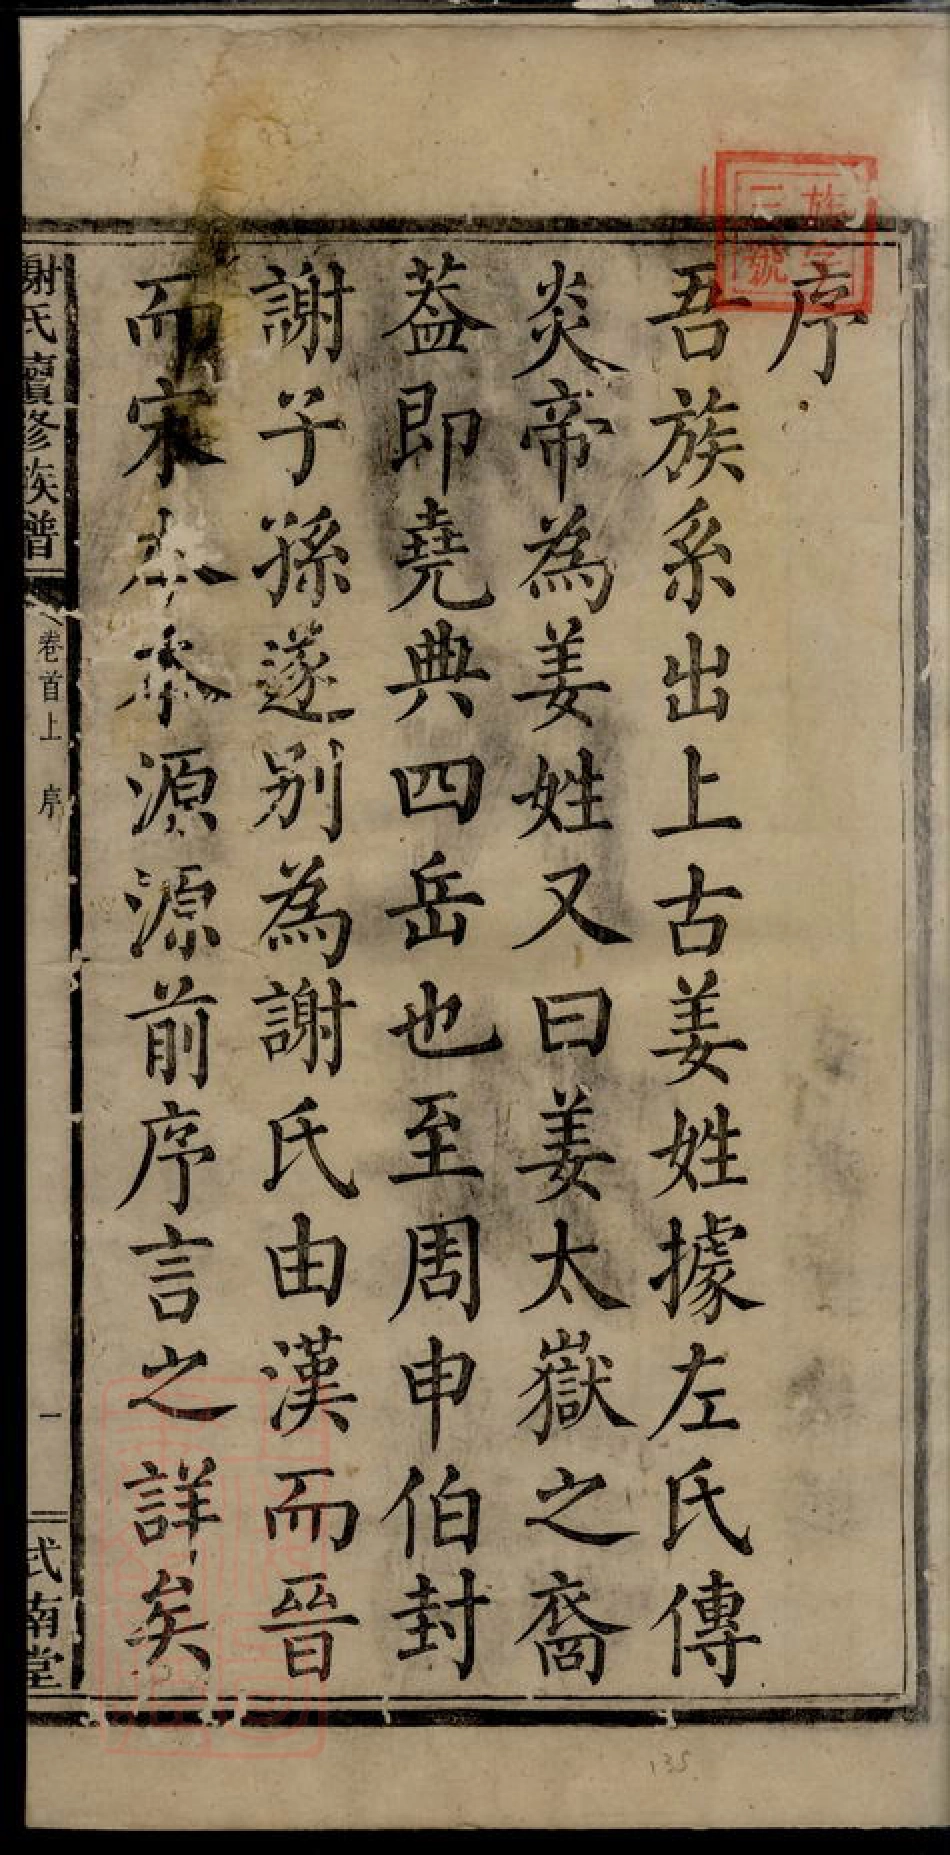 序
吾族系出上古姜姓據左氏傳
炎帝為姜姓又曰姜太嶽之裔
葢即堯典四岳也至周申伯封
謝子孫遂別為謝氏由漢而晉
而宋本本源源前序言之詳矣
謝氏續修族譜
卷首上 序
一
式南堂
族字
三號
135